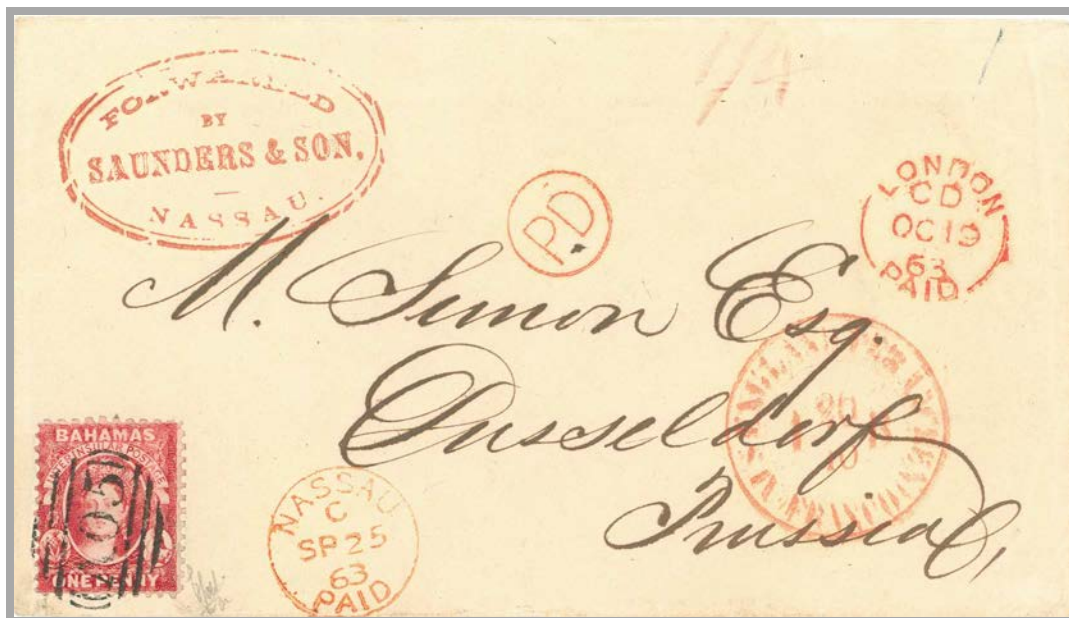 FORWARDED
BY
SAUNDERS & SON,
NASSAU.
1/4
PD
LONDON
CD
OC 19
63
PAID
M. Simon Esq.
Dusseldorf
Prussia,
20
10
FRANCO
BAHAMAS
INTERINSULAR POSTAGE
ONE PENNY
05
NASSAU
C
SP 25
63
PAID